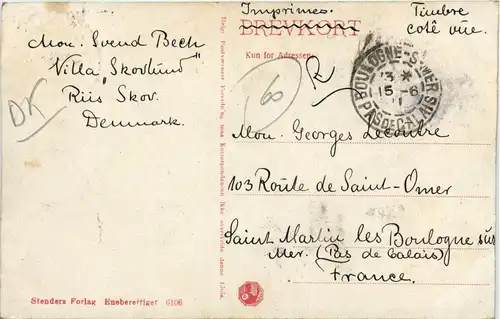 Imprimés.
Timbre
côté vue.
BREVKORT
Kun for Adressen.
Mon. Svend Bech
Villa "Skovlund"
Riis Skov.
Denmark.
DK
60
R
BOULOGNE-S-MER
13 *
15 - 6
11
PAS DE CALAIS
Mon. Georges Lecoutre
103 Route de Saint-Omer
Saint Martin les Boulogne sur
Mer. (Pas de Calais)
France.
Stenders Forlag Eneberettiget 6106